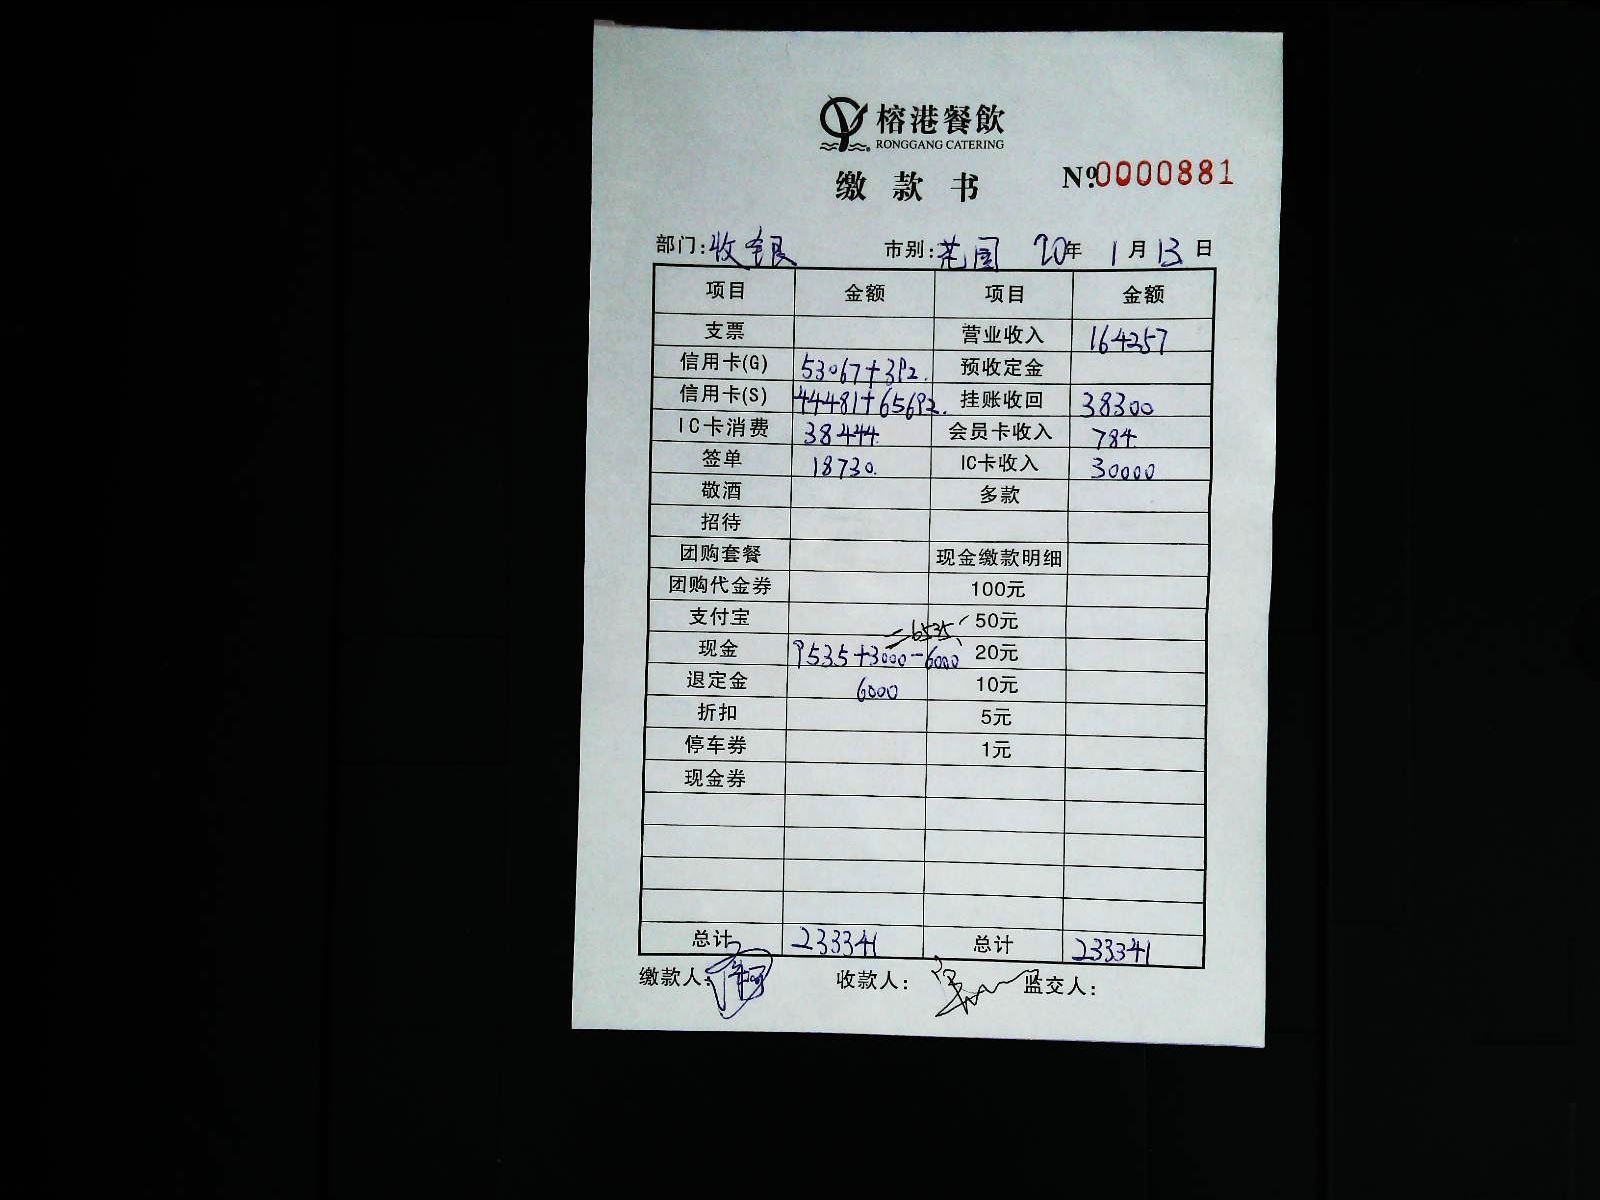 榕港餐飲
RONGGANG CATERING
缴款书 №0000881
部门:收银 市别:花园 20年 1月13日
项目 金额 项目 金额
支票 营业收入 164257
信用卡(G) 53067+392. 预收定金
信用卡(S) 44481+65692. 挂账收回 38300
IC卡消费 38444. 会员卡收入 784.
签单 18730. IC卡收入 30000
敬酒 多款
招待
团购套餐 现金缴款明细
团购代金券 100元
支付宝 50元
=6535
现金 9535+3000-6000 20元
退定金 6000 10元
折扣 5元
停车券 1元
现金券
总计 233341 总计 233341
缴款人: 收款人: 监交人: